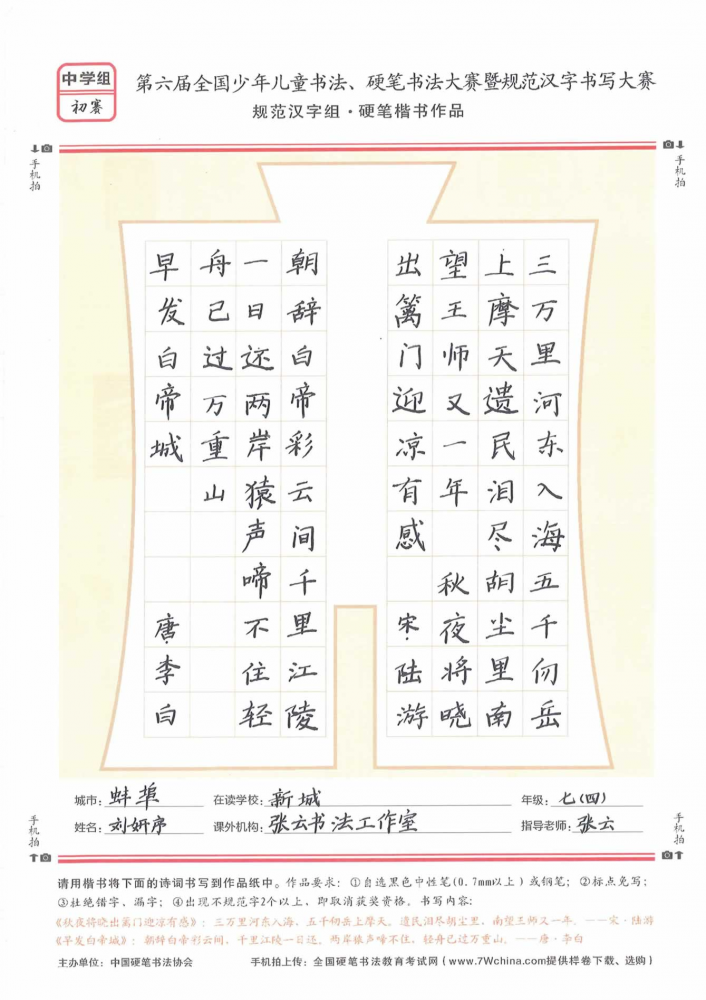 中学组
初赛
第六届全国少年儿童书法、硬笔书法大赛暨规范汉字书写大赛
规范汉字组·硬笔楷书作品
手机拍
手机拍
三万里河东入海五千仞岳
上摩天遗民泪尽胡尘里南
望王师又一年 秋夜将晓
出篱门迎凉有感 宋·陆游
朝辞白帝彩云间千里江陵
一日还两岸猿声啼不住轻
舟已过万重山
早发白帝城 唐·李白
城市：蚌埠 在读学校：新城 年级：七(四)
姓名：刘妍序 课外机构：张云书法工作室 指导老师：张云
手机拍
手机拍
请用楷书将下面的诗词书写到作品纸中。作品要求：①自选黑色中性笔(0.7mm以上)或钢笔；②标点免写；
③杜绝错字、漏字；④出现不规范字2个以上，即取消获奖资格。书写内容：
《秋夜将晓出篱门迎凉有感》：三万里河东入海，五千仞岳上摩天。遗民泪尽胡尘里，南望王师又一年。——宋·陆游
《早发白帝城》：朝辞白帝彩云间，千里江陵一日还。两岸猿声啼不住，轻舟已过万重山。——唐·李白
主办单位：中国硬笔书法协会 手机拍上传：全国硬笔书法教育考试网(www.7Wchina.com提供样卷下载、选购)